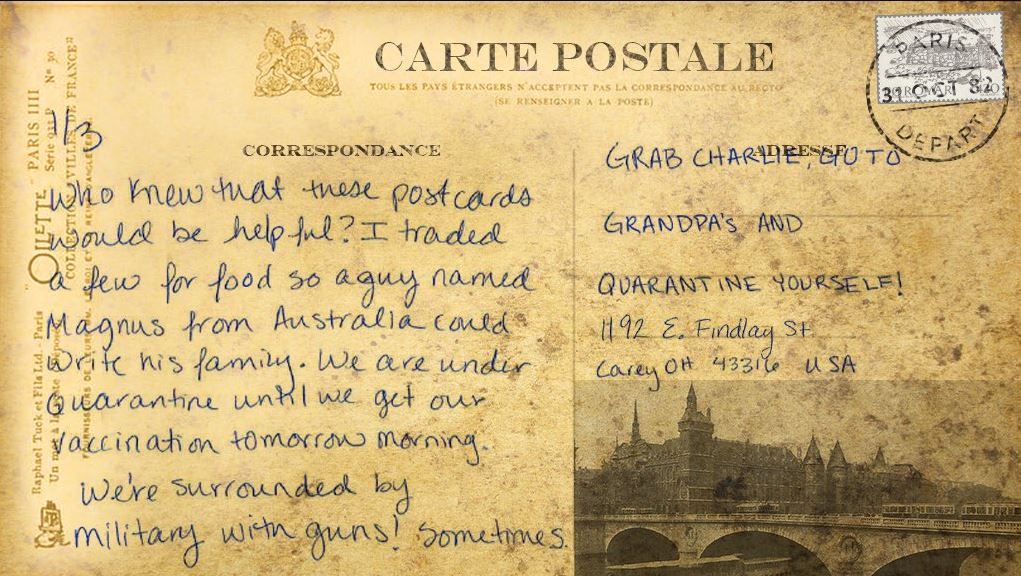 CARTE POSTALE
TOUS LES PAYS ÉTRANGERS N'ACCEPTENT PAS LA CORRESPONDANCE AU RECTO
(SE RENSEIGNER A LA POSTE)
PARIS
31 OCT 82
DEPART
CORRESPONDANCE
ADRESSE
1/3
Who knew that these postcards
would be helpful? I traded
a few for food so a guy named
Magnus from Australia could
write his family. We are under
Quarantine until we get our
vaccination tomorrow morning.
We're surrounded by
military with guns! Sometimes
GRAB CHARLIE, GO TO
GRANDPA'S AND
QUARANTINE YOURSELF!
1192 E. Findlay St
Carey OH 43316 USA
PARIS IIII
Série 931 P Nº 30
OILETTE
COLLECTION VILLES DE FRANCE
Raphael Tuck et Fils Ltd. Paris